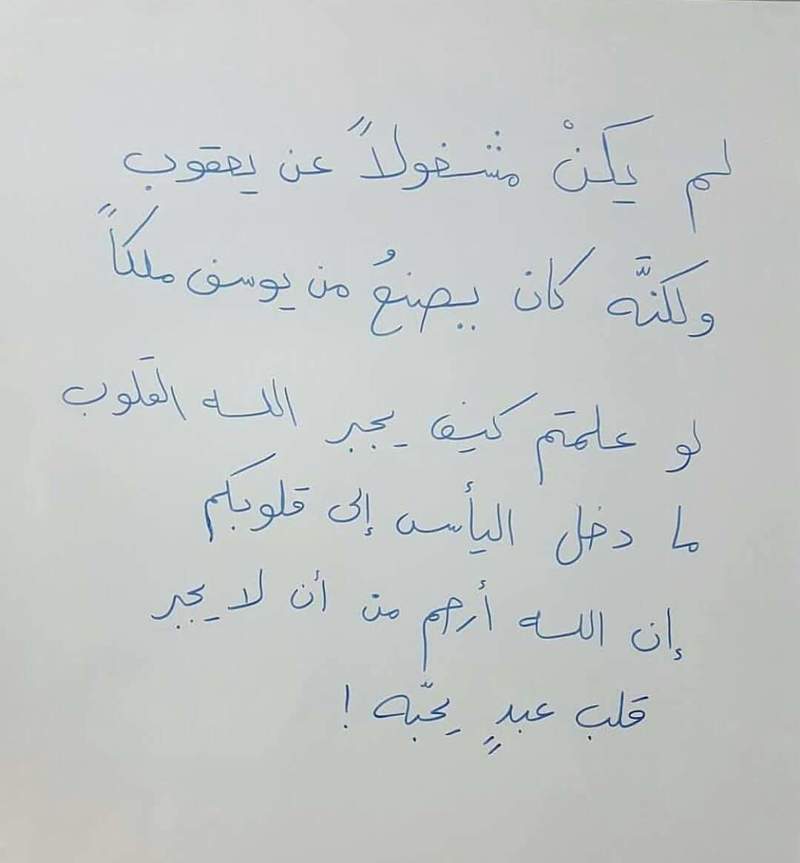 لم يكنْ مشغولاً عن يعقوب
ولكنَّه كان يصنعُ من يوسف ملكاً
لو علمتم كيف يجبر الله القلوب
ما دخل اليأس إلى قلوبكم
إن الله أرحم من أن لا يجبر
قلب عبدٍ يحبّه !